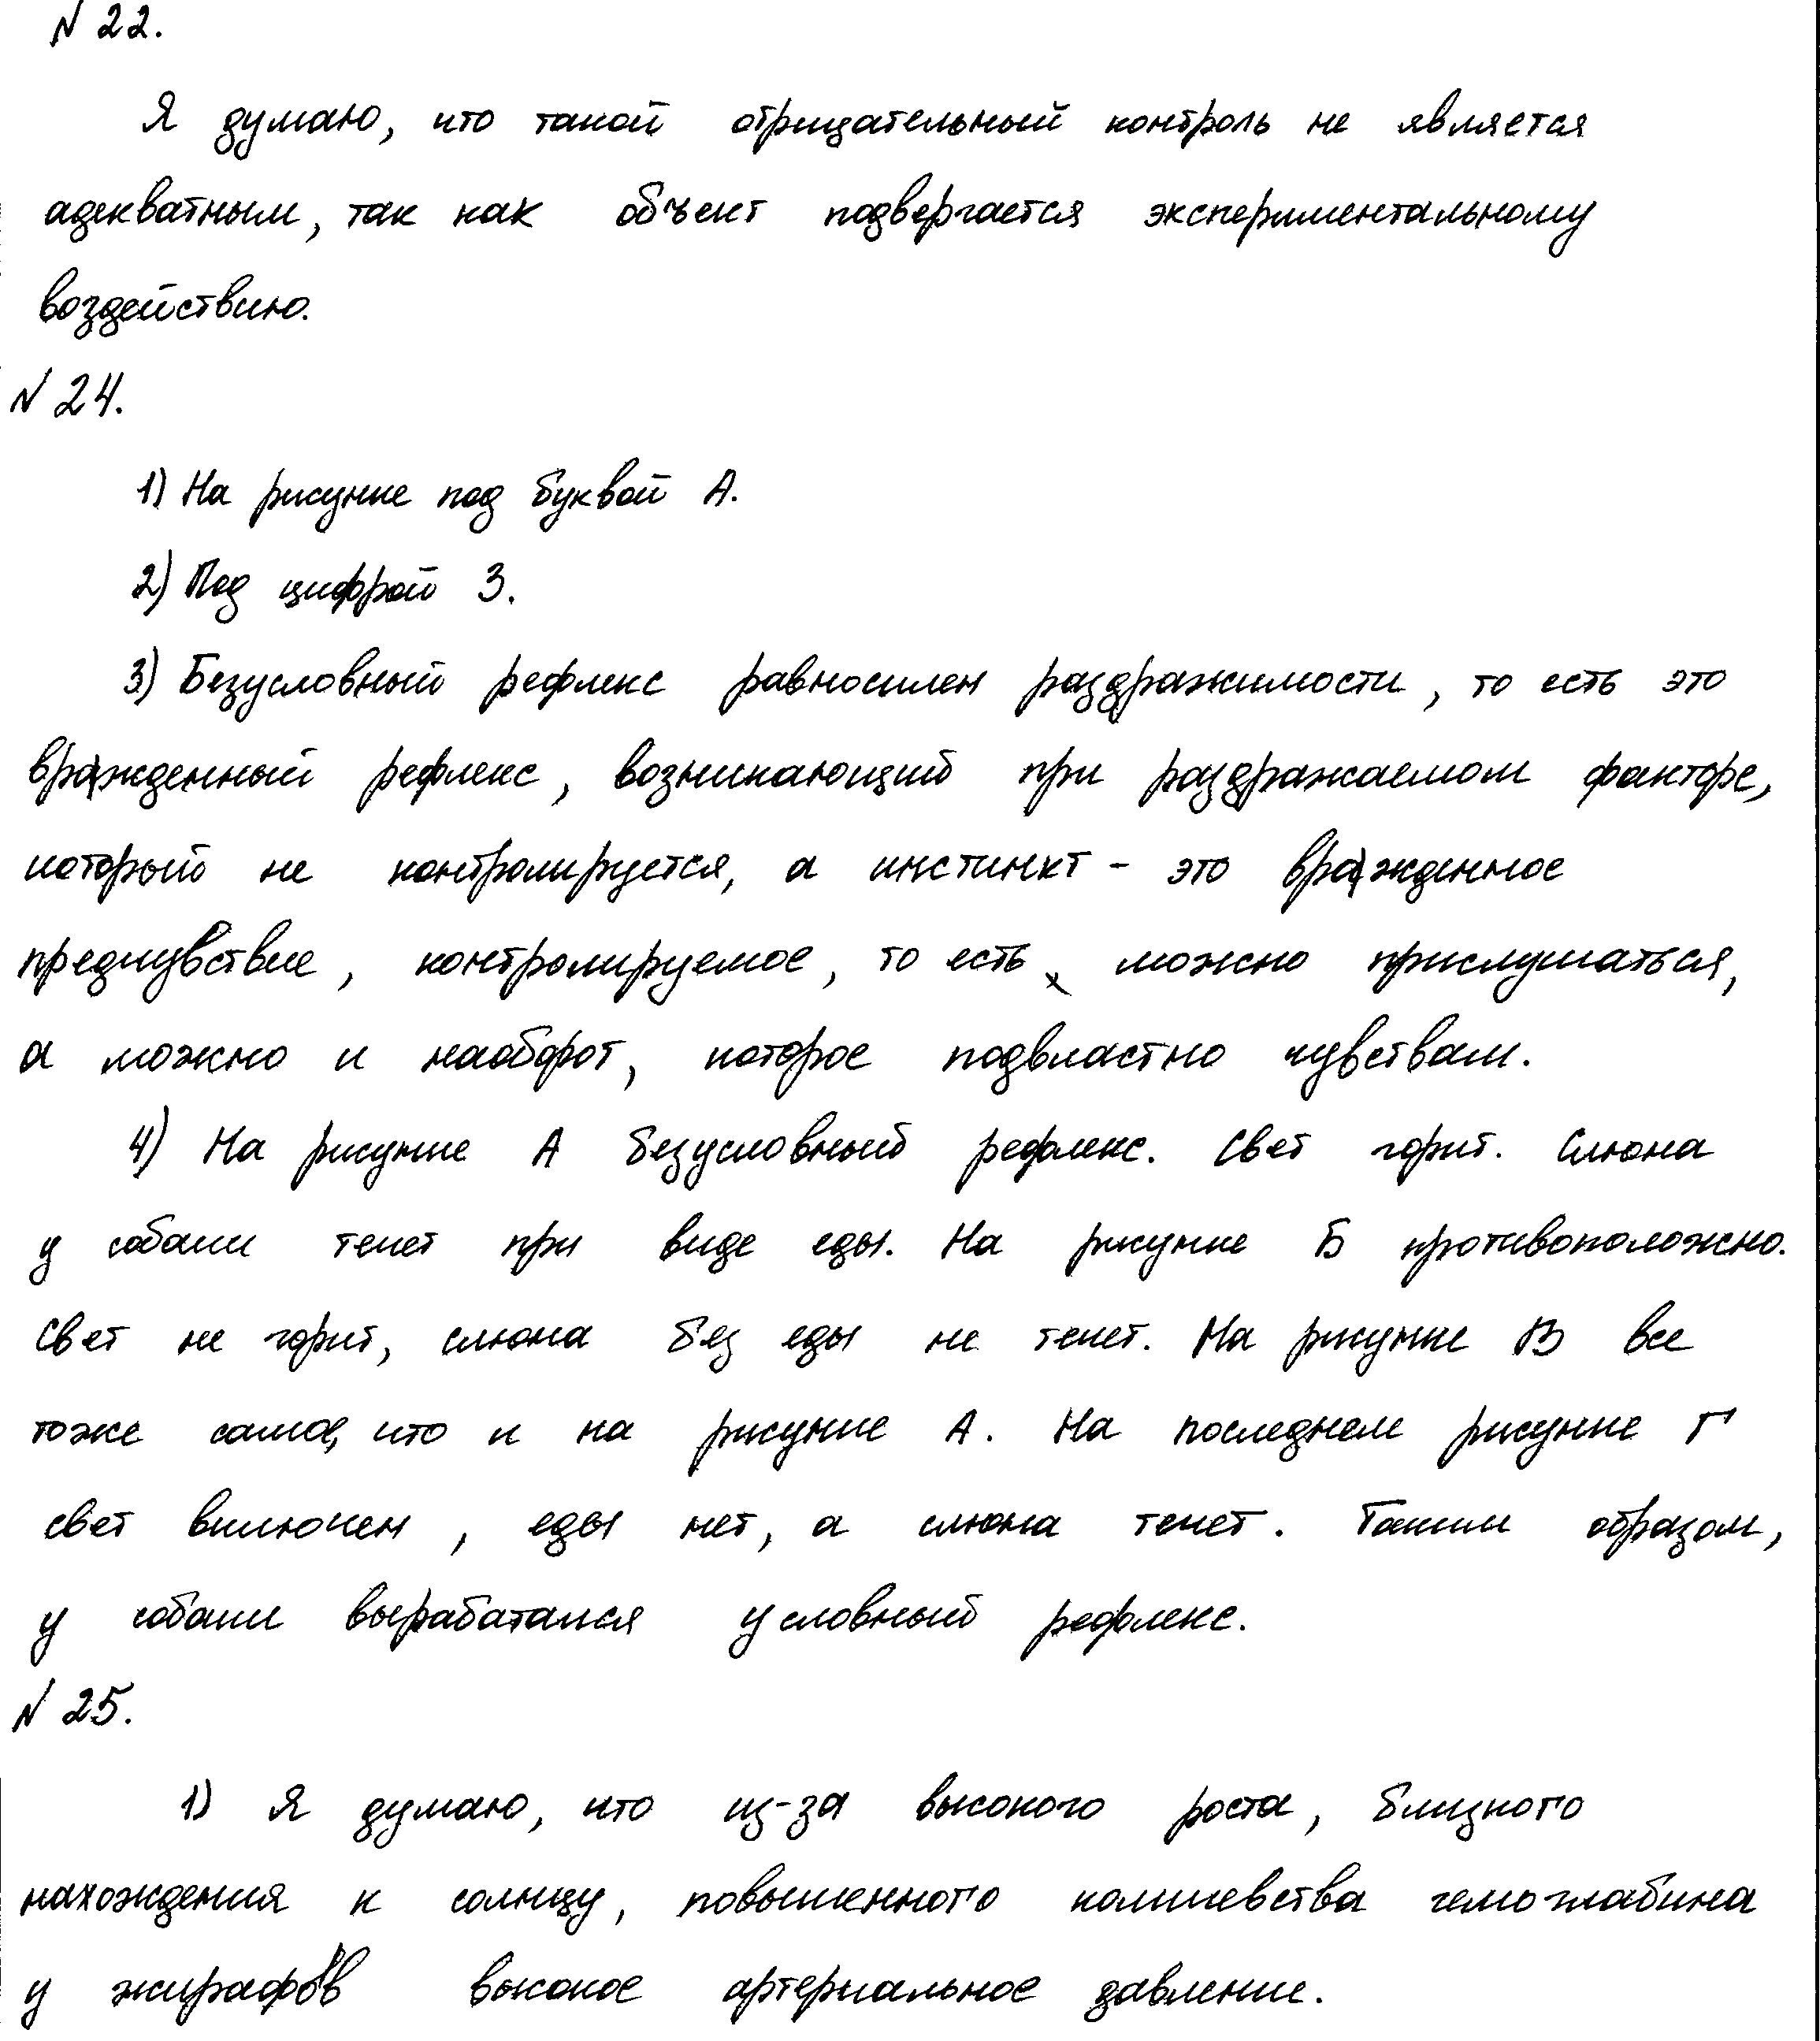 N 22.
Я думаю, что такой отрицательный контроль не является
адекватным, так как объект подвергается экспериментальному
воздействию.
N 24.
1) На рисунке под буквой А.
2) Под цифрой 3.
3) Безусловный рефлекс равносилен раздражимости, то есть это
врожденный рефлекс, возникающий при раздражаемом факторе,
который не контролируется, а инстинкт - это врожденное
предчувствие, контролируемое, то есть можно прислушаться,
а можно и наоборот, которое подвластно чувствам.
4) На рисунке А безусловный рефлекс. Свет горит. Слюна
у собаки течет при виде еды. На рисунке Б противоположно.
Свет не горит, слюна без еды не течет. На рисунке В все
тоже самое, что и на рисунке А. На последнем рисунке Г
свет включен, еды нет, а слюна течет. Таким образом,
у собаки выработался условный рефлекс.
N 25.
1) Я думаю, что из-за высокого роста, близкого
нахождения к солнцу, повышенного количевства гемоглабина
у жирафов высокое артериальное давление.